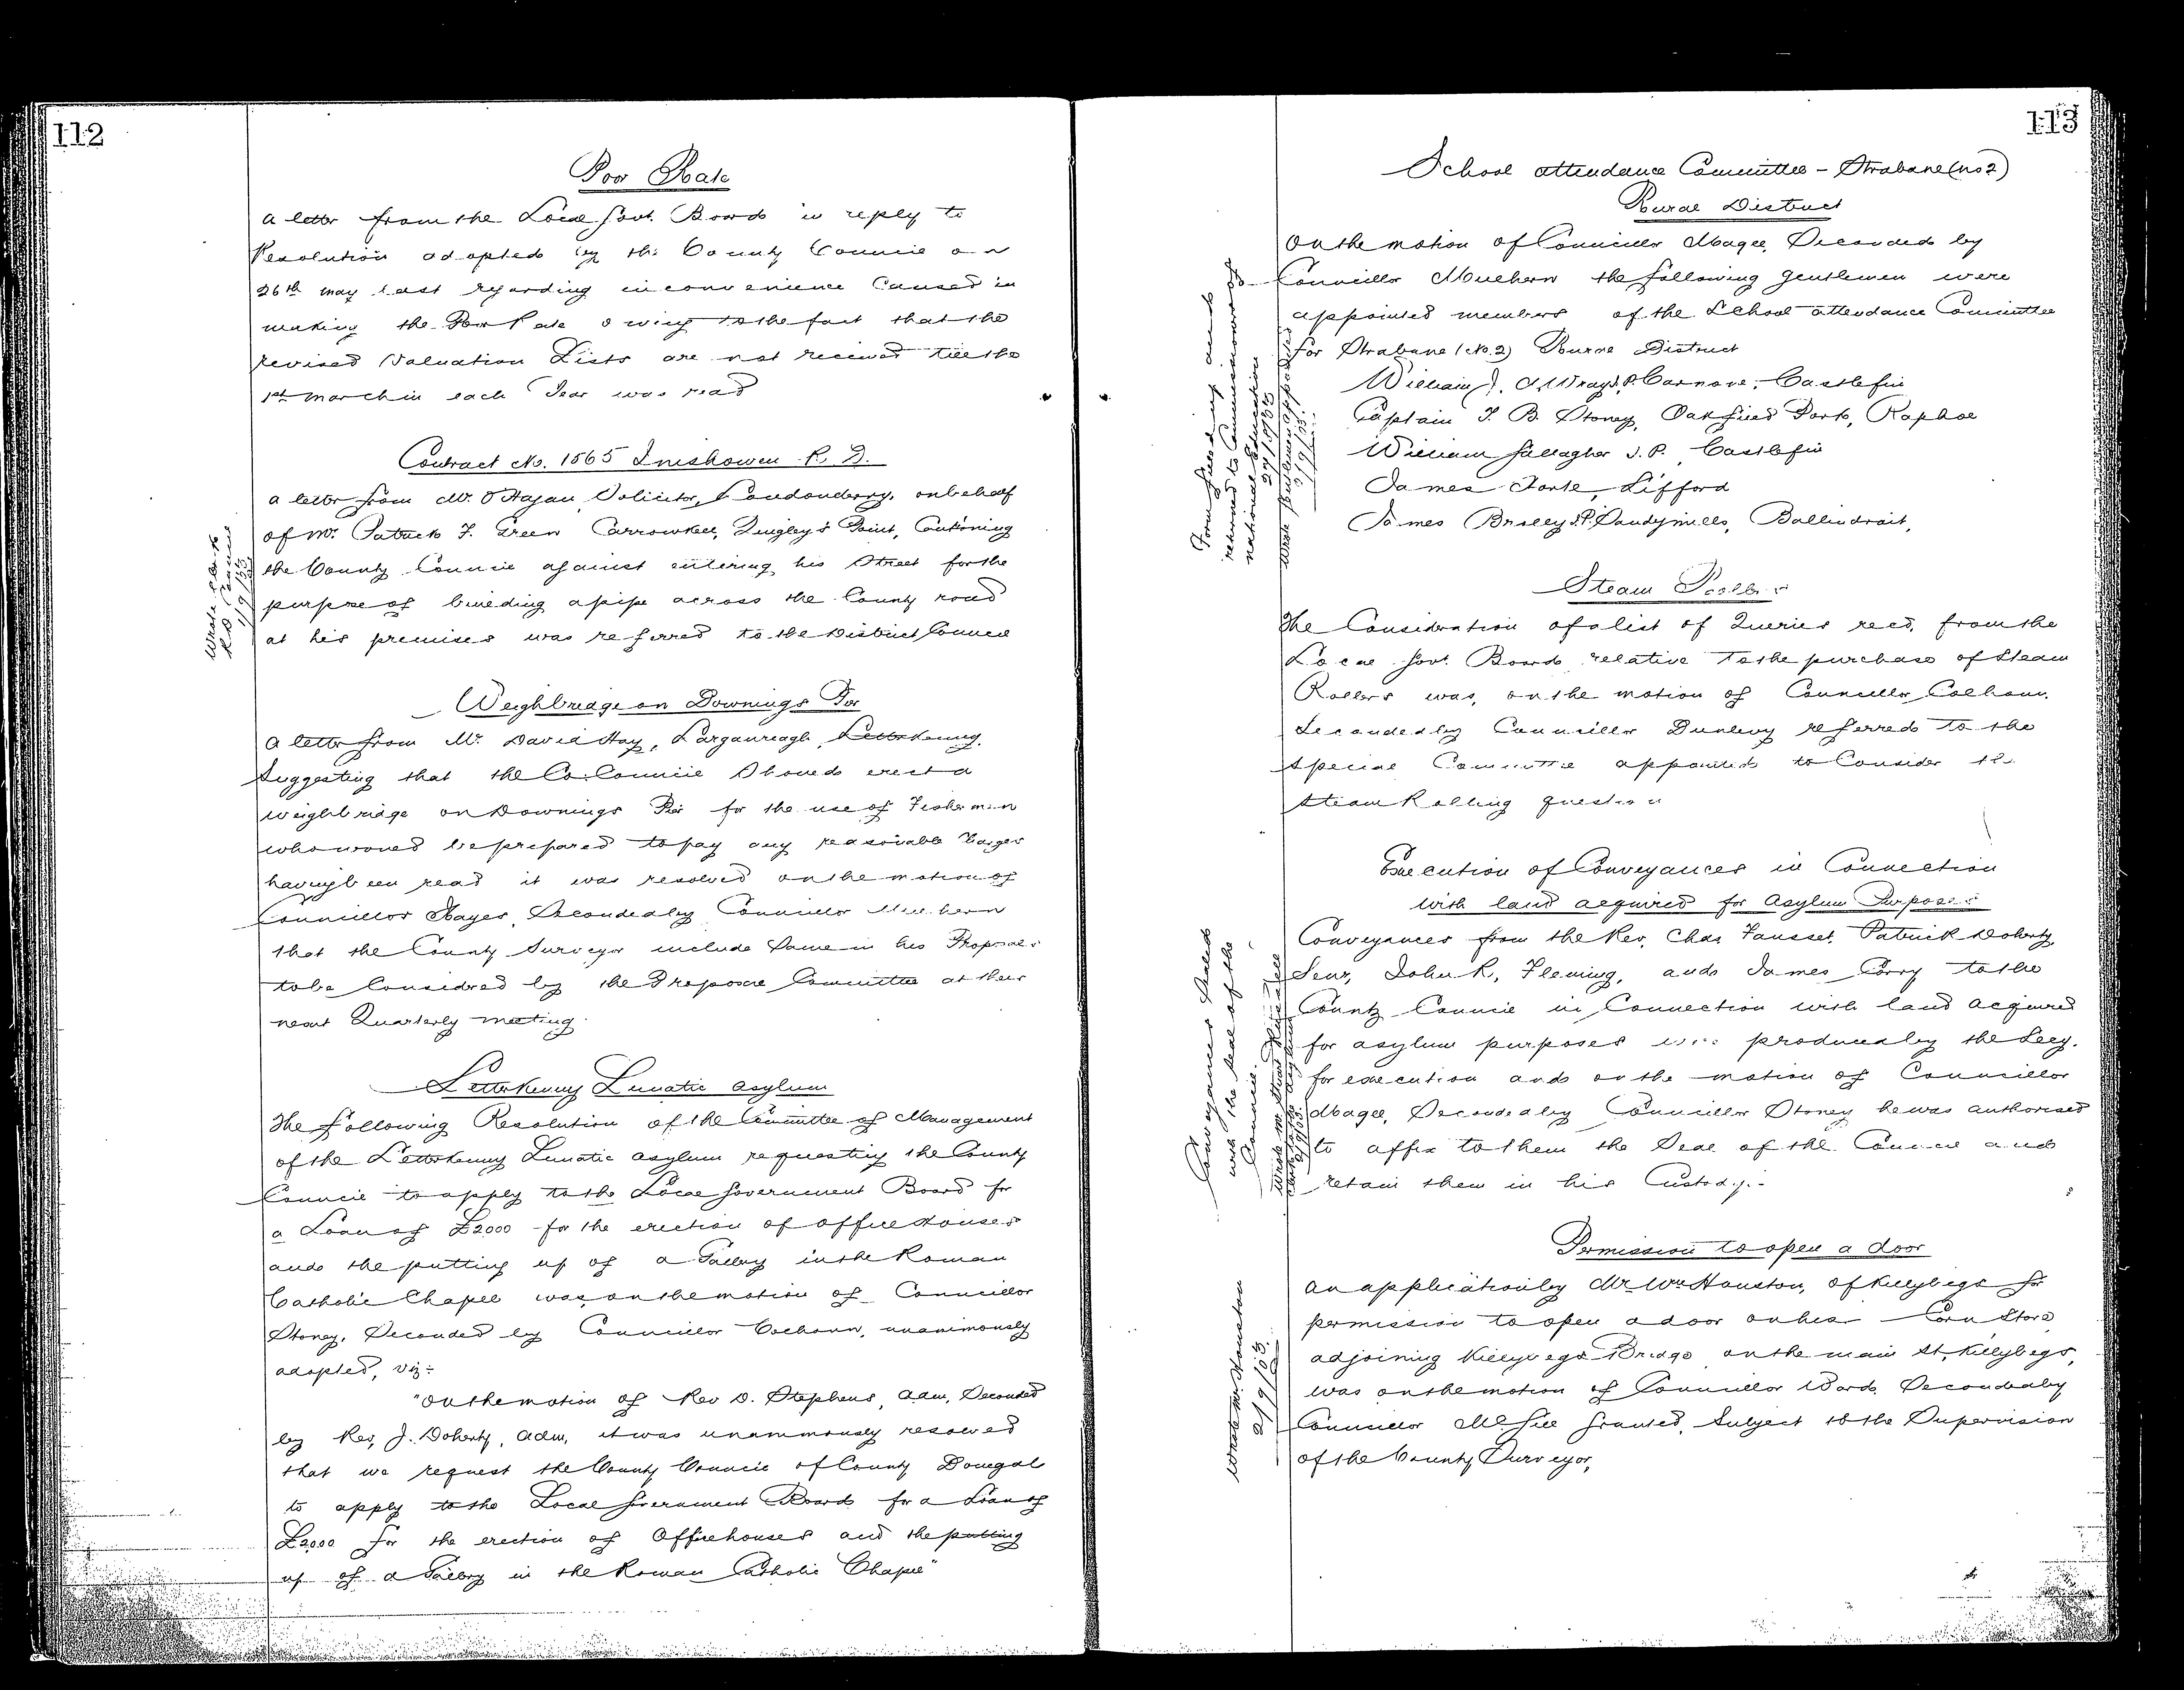 112
Poor Rate
A letter from the Local Govt. Board in reply to
Resolution adopted by the County Council on
26th May last regarding inconvenience Caused in
making the Poor Rate owing to the fact that the
revised Valuation Lists are not received till the
1st March in each Year was read
Contract No. 1565 Inishowen R. D.
A letter from Mr. O'Hagan Solicitor, Londonderry, on behalf
of Mr. Patrick F. Green Carrowkeel, Quigley's Point, Cautioning
the County Council against entering his Street for the
purpose of building a pipe across the County road
at his premises was referred to the District Council
Weighbridge on Downings Pier
A letter from Mr. David Hay, Larganreagh, Letterkenny.
Suggesting that the Co. Council Should erect a
weighbridge on Downings Pier for the use of Fishermen
who would be prepared to pay any reasonable Charges
having been read it was resolved on the motion of
Councillor Hayes, Seconded by Councillor Mulhern
that the County Surveyor include Same in his Proposals
to be Considered by the Proposal Committee at their
next Quarterly meeting.
Letterkenny Lunatic Asylum
The following Resolution of the Committee of Management
of the Letterkenny Lunatic Asylum requesting the County
Council to apply to the Local Government Board for
a Loan of £2000 for the erection of office Houses
and the putting up of a Gallery in the Roman
Catholic Chapel was on the motion of Councillor
Stoney, Seconded by Councillor Colhoun, unanimously
adopted, viz:-
"On the motion of Rev D. Stephens, Adm, Seconded
by Rev, J. Doherty, Adm, it was unanimously resolved
that we request the County Council of County Donegal
to apply to the Local Government Board for a Loan of
£2000 for the erection of Office houses and the putting
up of a Gallery in the Roman Catholic Chapel"
113
School Attendance Committee - Strabane (No 2)
Rural District
On the motion of Councillor Magee, Seconded by
Councillor Mulhern the following Gentlemen were
appointed members of the School Attendance Committee
for Strabane (No. 2) Rural District
William J. A. Wray J.P. Carnone, Castlefin
Captain T. B. Stoney, Oakfield Park, Raphoe
William Gallagher J.P. Castlefin
James Lifford
James J.P. Sandymills, Ballindrait,
Forms filled up and
returned to Commissioners of
National Education
Steam Rollers
The Consideration of a list of Queries recd. from the
Local Govt. Board relative to the purchase of Steam
Rollers was, on the motion of Councillor Colhoun,
Seconded by Councillor Dunlevy referred to the
Special Committee appointed to Consider the
Steam Rolling question
Execution of Conveyances in Connection
with land acquired for Asylum Purposes
Conveyances from the Rev. Chas Fausset, Patrick Doherty
Senr, John R, Fleming, and James Corry to the
County Council in Connection with land acquired
for asylum purposes were produced by the Secy.
for execution and on the motion of Councillor
Magee, Seconded by Councillor Stoney he was authorised
to affix to them the Seal of the Council and
retain them in his Custody.-
Conveyances Sealed
with the Seal of the
Council.
Permission to open a door
An application by Mr. Wm Houston, of Killybegs for
permission to open a door on his Corn Store
adjoining Killybegs Bridge on the main St, Killybegs,
was on the motion of Councillor Ward, Seconded by
Councillor McGill Granted, Subject to the Supervision
of the County Surveyor,
Wrote Mr. Houston
2/9/03